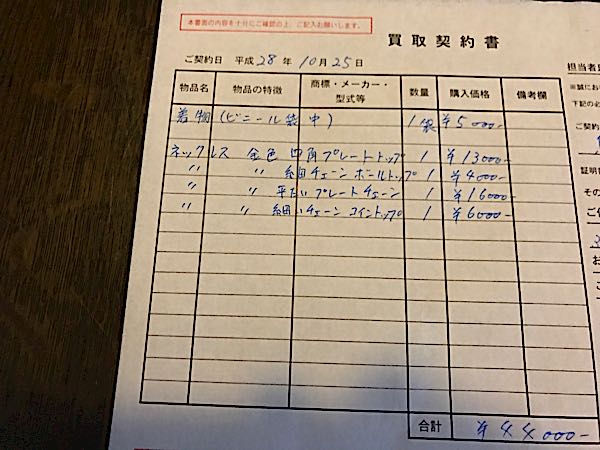 本書面の内容を十分にご確認の上、ご記入お願いします。
買取契約書
ご契約日 平成 28 年 10 月 25 日
担当者
物品名 物品の特徴 商標・メーカー・型式等 数量 購入価格 備考欄
着物 (ビニール袋中) 1袋 ¥5000-
ネックレス 金色 四角プレートトップ 1 ¥13000-
〃 〃 細チェーン ボールトップ 1 ¥4000-
〃 〃 平たいプレートチェーン 1 ¥16000-
〃 〃 細いチェーン コイントップ 1 ¥6000-
合計 ¥44000-
※誠にお
下記の必
ご契約
証明書
その
ご住
お
ご